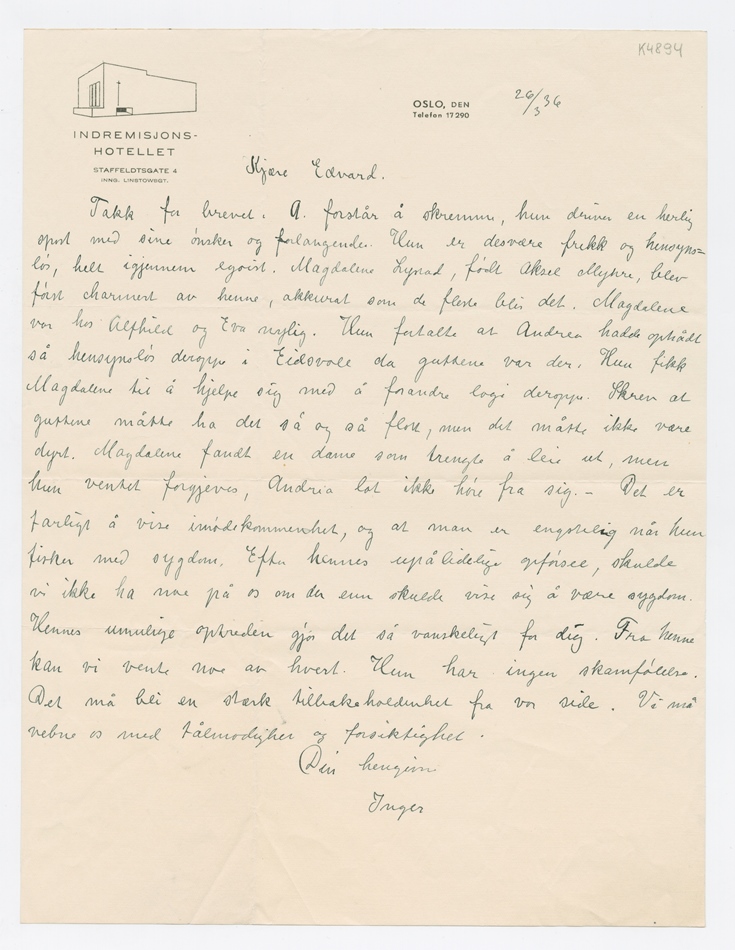 K4894
OSLO, DEN 26/3 36
Telefon 17290
INDREMISJONS-
HOTELLET
STAFFELDTSGATE 4
INNG. LINSTOWSGT.
Kjære Edvard.
Takk for brevet. A. forstår å skremme, hun driver en herlig
sport med sine ønsker og forlangender. Hun er desværre frekk og hensyns-
løs, helt igjennem egoist. Magdalene Lystad, født Aksel Myhre, blev
først charmert av henne, akkurat som de fleste blir det. Magdalene
var hos Alfhild og Eva nylig. Hun fortalte at Andrea hadde optrådt
så hensynsløs deroppe i Eidsvoll da guttene var der. Hun fikk
Magdalene til å hjelpe sig med å forandre logi deroppe. Skrev at
guttene måtte ha det så og så flott, men det måtte ikke være
dyrt. Magdalene fandt en dame som trengte å leie ut, men
hun ventet forgjeves, Andrea lot ikke høre fra sig. – Det er
farligt å vise imødekommenhet, og at man er engstelig når hun
fisker med sygdom. Efter hennes upålidelige opførsel, skulde
vi ikke ha noe på os om der enn skulde vise sig å være sygdom.
Hennes umulige optreden gjør det så vanskeligt for dig. Fra henne
kan vi vente noe av hvert. Hun har ingen skamfølelse.
Det må bli en stærk tilbakeholdenhet fra vor side. Vi må
vebne os med tålmodighet og forsiktighet.
Din hengivne
Inger